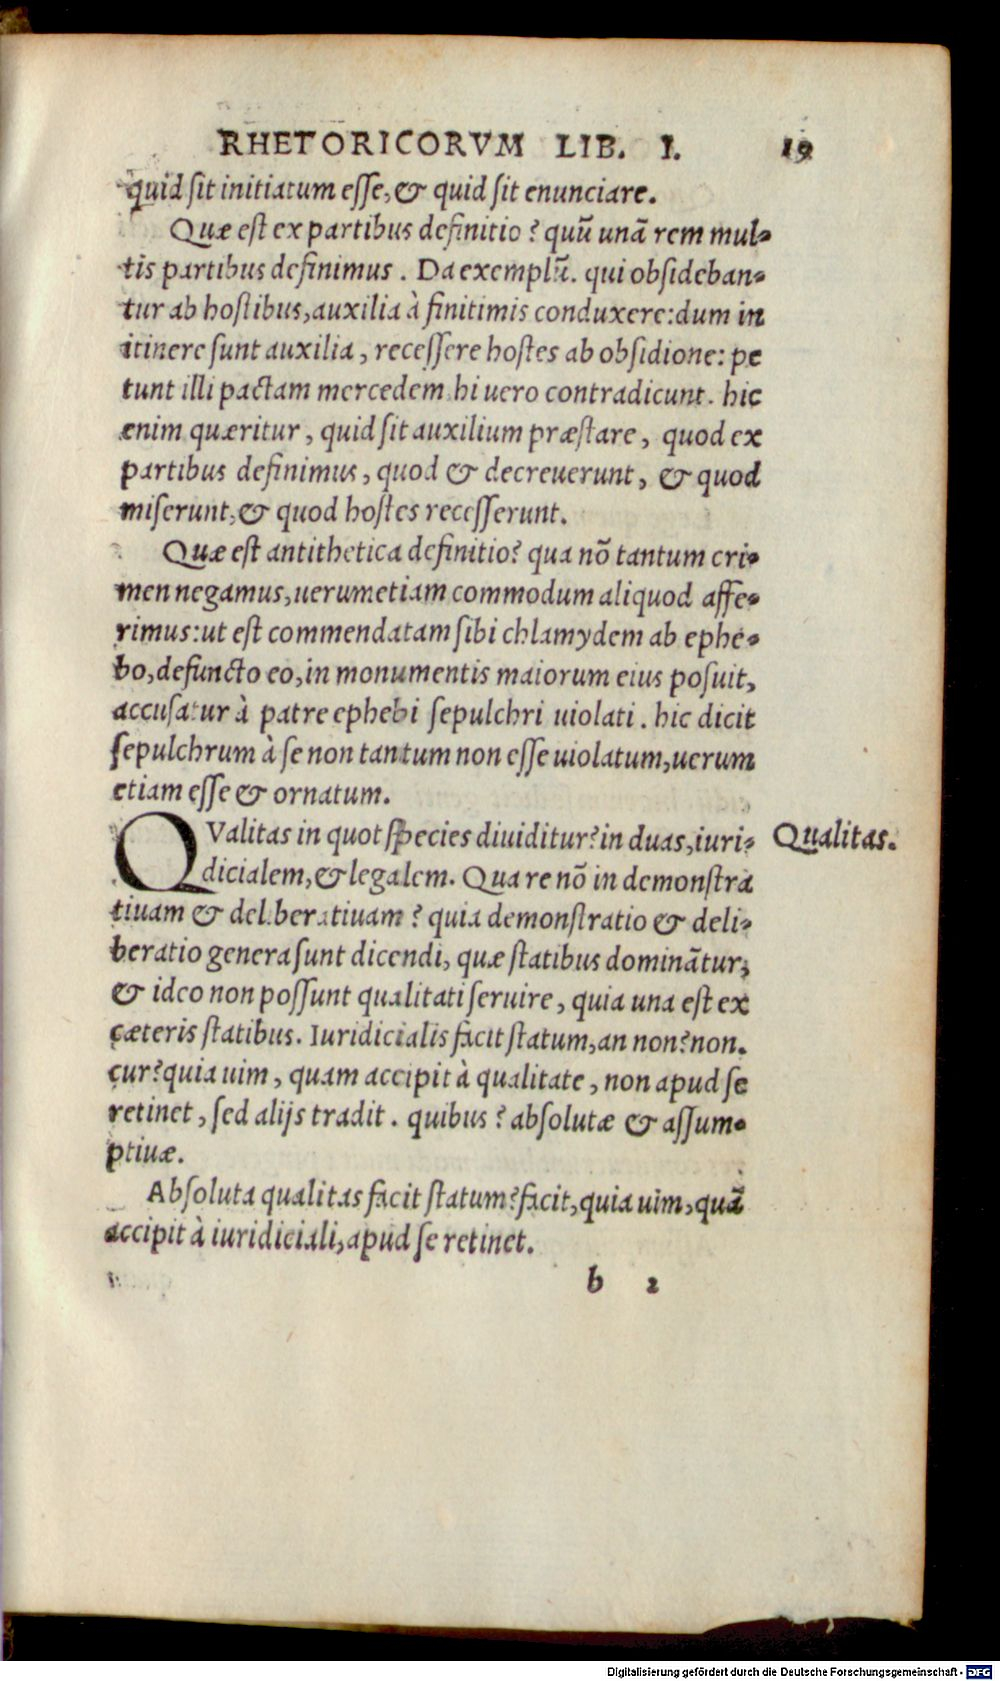 RHETORICORVM LIB. I. 19
quid sit initiatum esse, & quid sit enunciare.
Quæ est ex partibus definitio? quū unā rem mul-
tis partibus definimus. Da exemplū. qui obsideban-
tur ab hostibus, auxilia à finitimis conduxere: dum in
itinere sunt auxilia, recessere hostes ab obsidione: pe
tunt illi pactam mercedem hi uero contradicunt. hic
enim quæritur, quid sit auxilium præstare, quod ex
partibus definimus, quod & decreuerunt, & quod
miserunt, & quod hostes recesserunt.
Quæ est antithetica definitio? qua nō tantum cri-
men negamus, uerumetiam commodum aliquod affe-
rimus: ut est commendatam sibi chlamydem ab ephe-
bo, defuncto eo, in monumentis maiorum eius posuit,
accusatur à patre ephebi sepulchri uiolati. hic dicit
sepulchrum à se non tantum non esse uiolatum, uerum
etiam esse & ornatum.
QValitas in quot species diuiditur? in duas, iuri- Qualitas.
dicialem, & legalem. Qua re nō in demonstrā
tiuam & deliberatiuam? quia demonstratio & deli-
beratio genera sunt dicendi, quæ statibus dominātur,
& ideo non possunt qualitati seruire, quia una est ex
cæteris statibus. Iuridicialis facit statum, an non? non.
cur? quia uim, quam accipit à qualitate, non apud se
retinet, sed alijs tradit. quibus? absolutæ & assum-
ptiuæ.
Absoluta qualitas facit statum? facit, quia uim, quā
accipit à iuridiciali, apud se retinet.
b 2
Digitalisierung gefördert durch die Deutsche Forschungsgemeinschaft - DFG